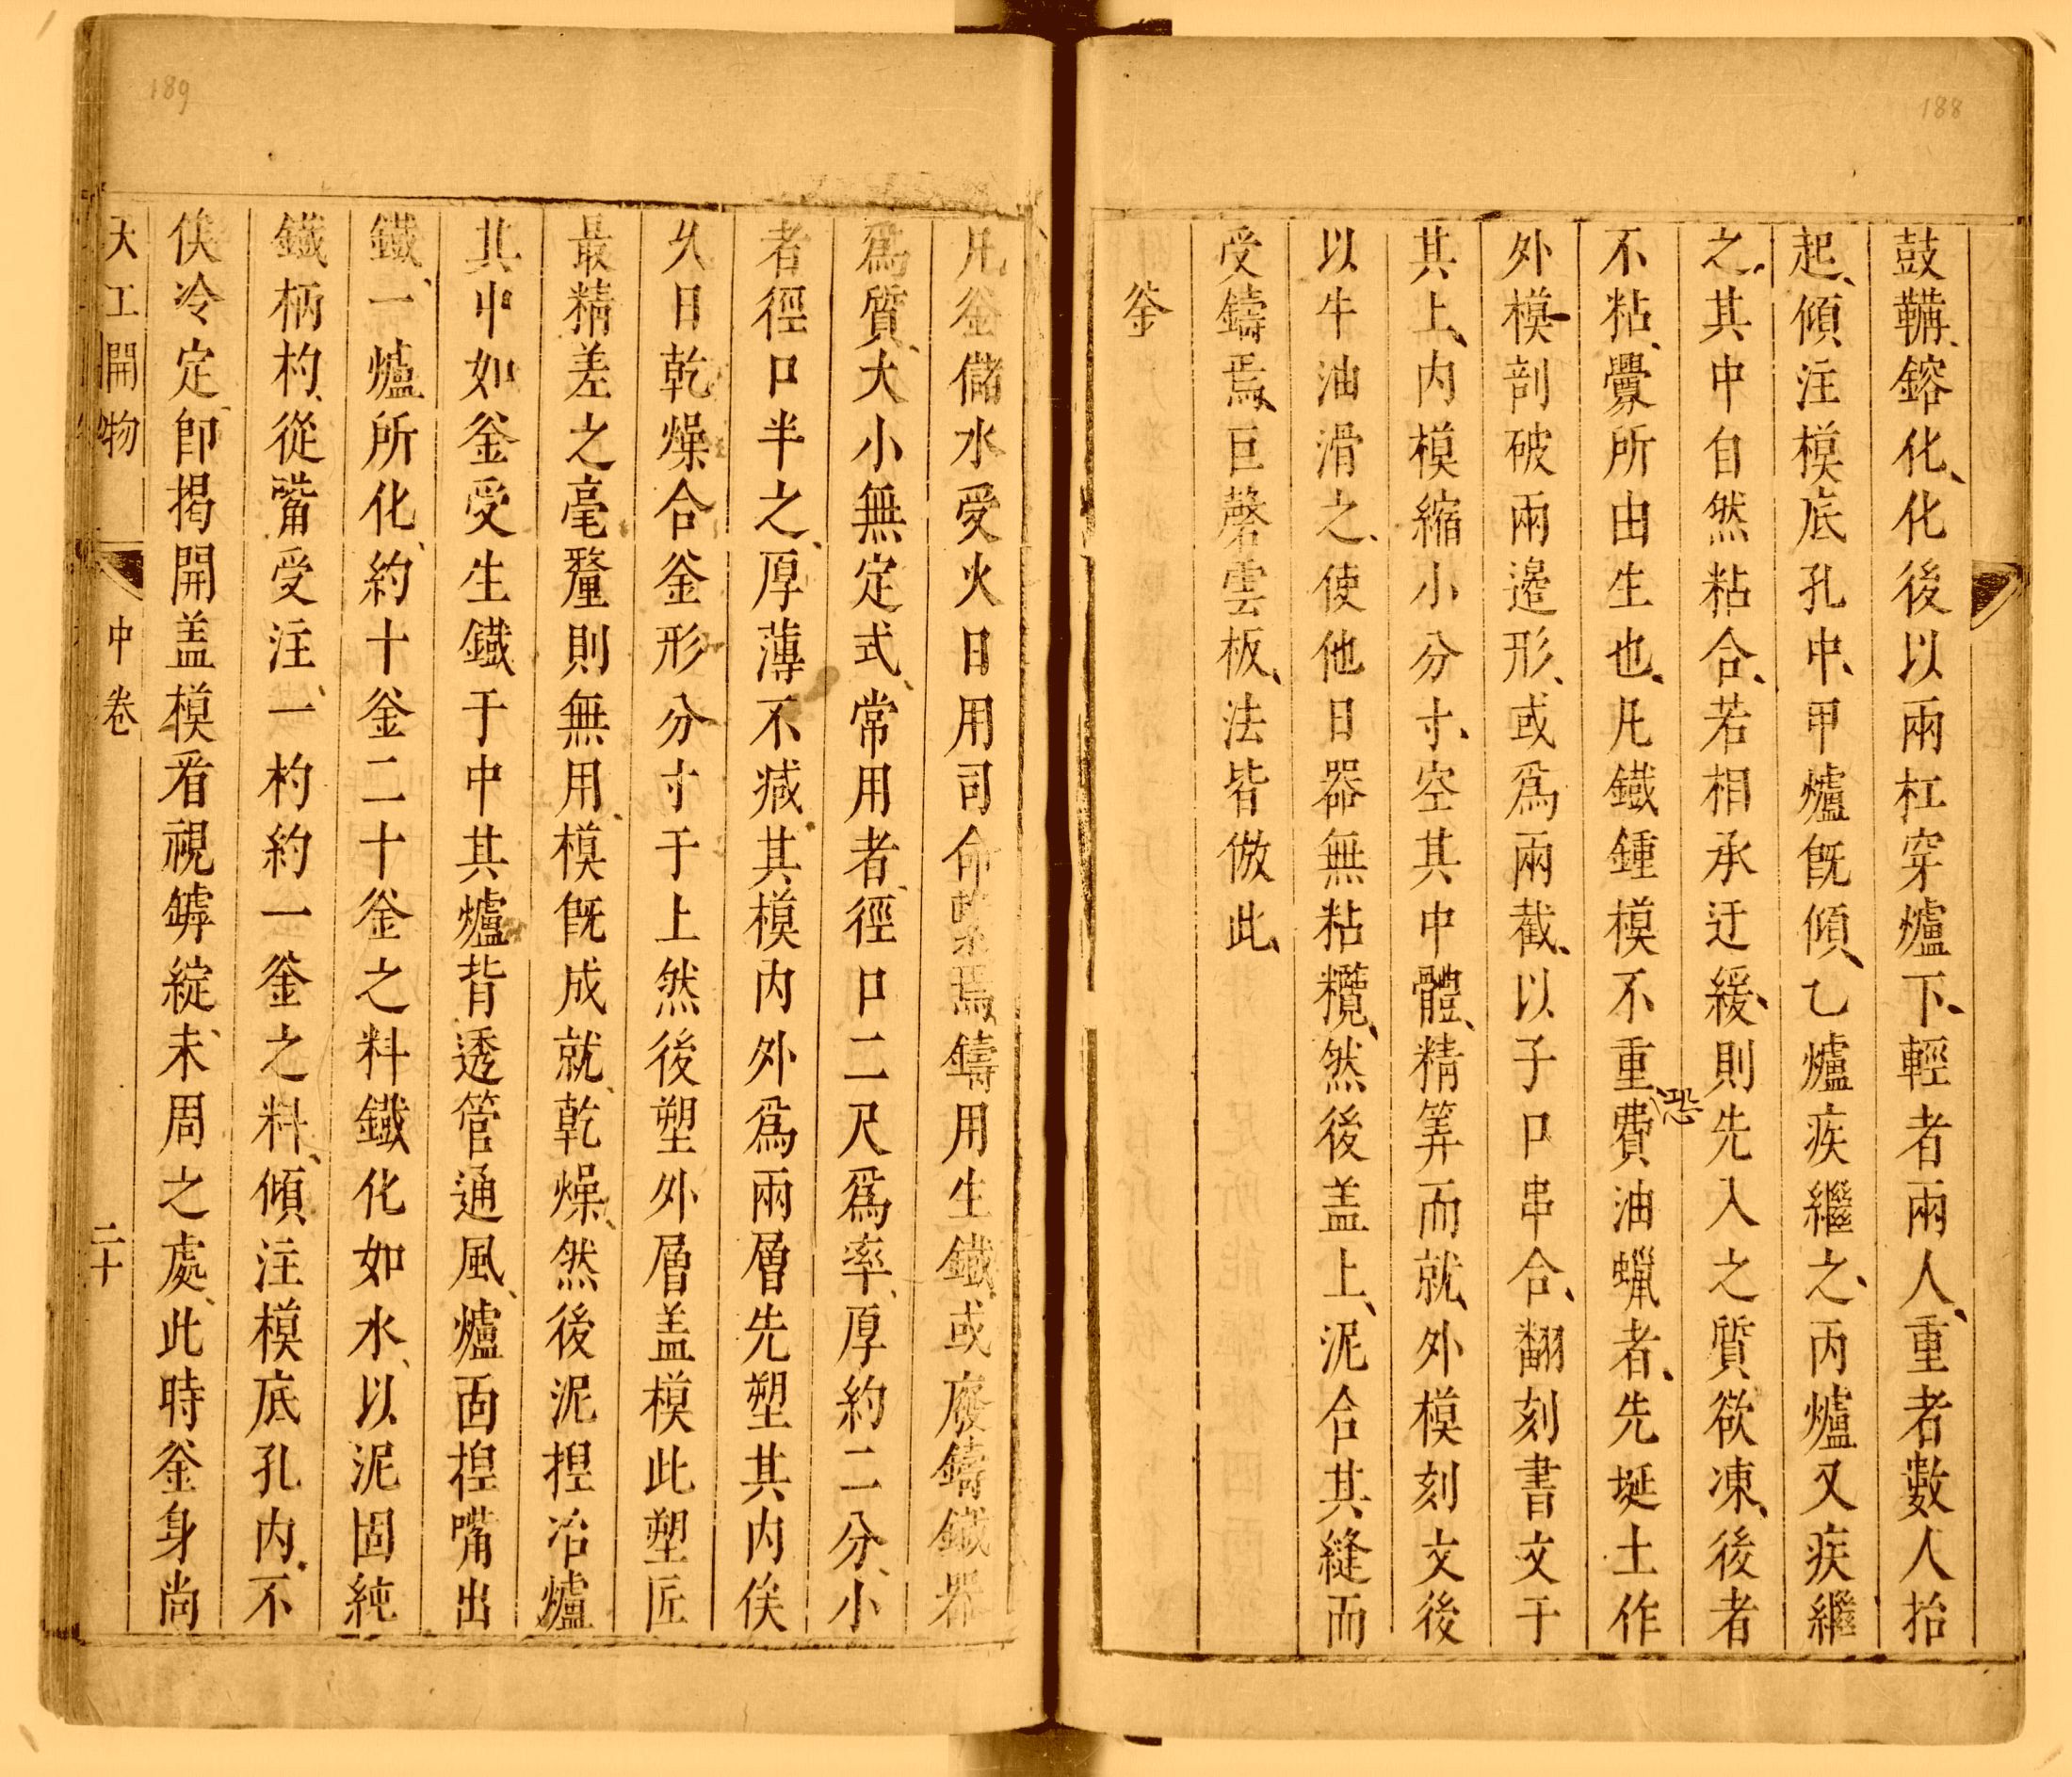 188
鼓鞲鎔化化後以兩杠穿爐下輕者兩人重者數人抬
起傾注模底孔中甲爐旣傾乙爐疾繼之丙爐又疾繼
之其中自然粘合若相承迂緩則先入之質欲凍後者
不粘釁所由生也凡鐵鍾模不重費油蠟者先埏土作
恐
外模剖破兩邉形或爲兩截以子口串合翻刻書文于
其上內模縮小分寸空其中體精筭而就外模刻文後
以牛油滑之使他日器無粘欖然後盖上泥合其縫而
受鑄焉巨磬雲板法皆倣此
釜
189
凡釜儲水受火日用司命繫焉鑄用生鐵或廢鑄鐵器
爲質大小無定式常用者徑口二尺爲率厚約二分小
者徑口半之厚薄不减其模內外爲兩層先塑其內俟
久日乾燥合釜形分寸于上然後塑外層盖模此塑匠
最精差之毫釐則無用模旣成就乾燥然後泥揑冶爐
其中如釜受生鐵于中其爐背透管通風爐面揑嘴出
鐵一爐所化約十釜二十釜之料鐵化如水以泥固純
鐵柄杓從嘴受注一杓約一釜之料傾注模底孔內不
俟冷定卽揭開盖模看視罅綻未周之處此時釜身尚
天工開物 中卷 二十